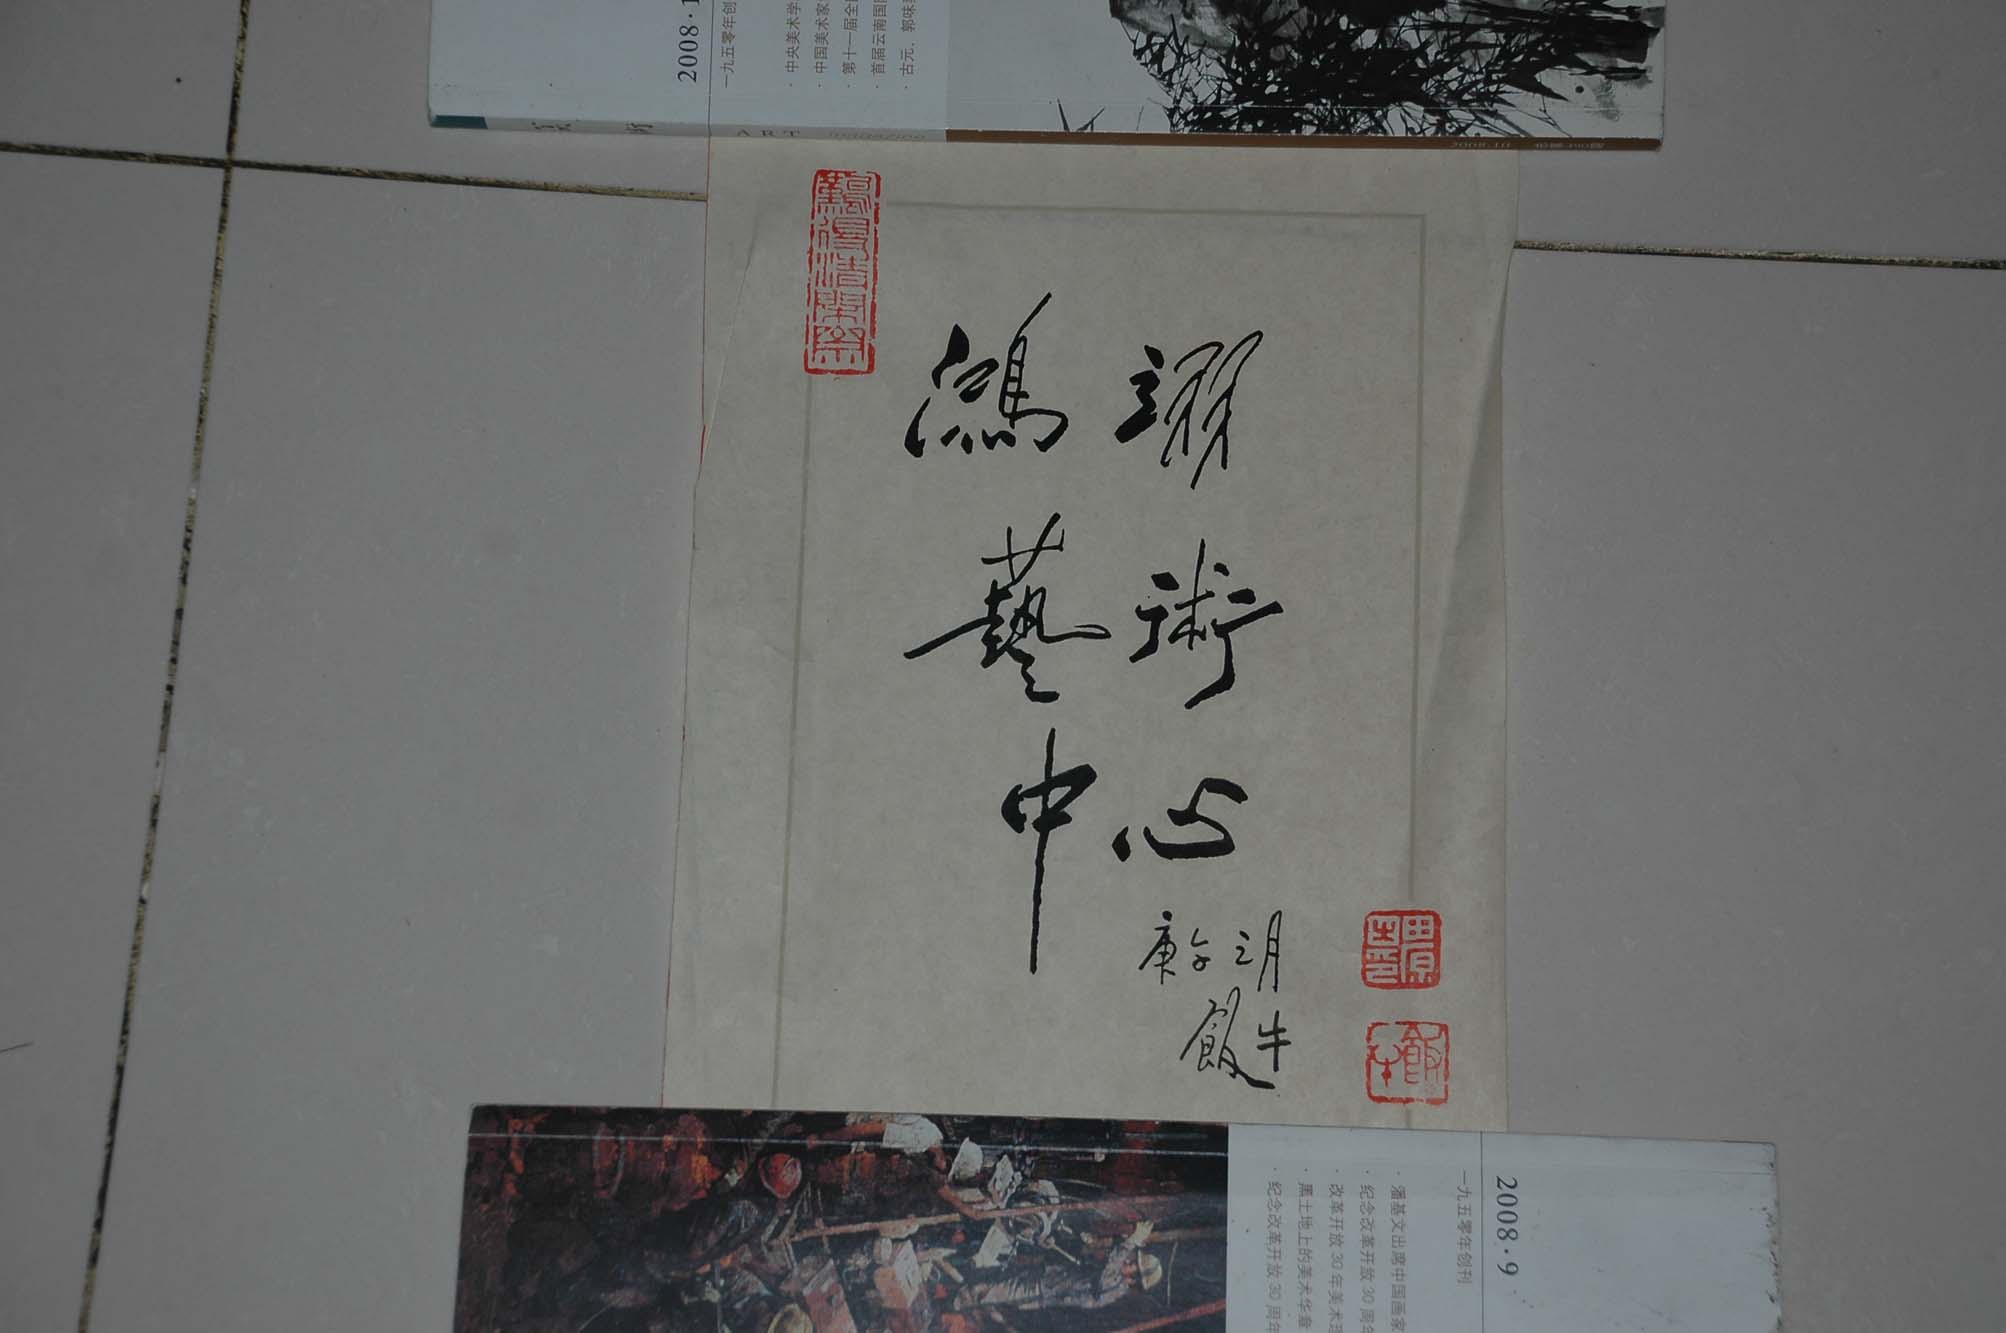 2008·1
一九五零年创
·中央美术学
·中国美术家
·第十一届全国
·首届云南国际
·古元、郭味蕖
ART
2008.10
鴻 耀
藝 術
中 心
庚午三月
飯牛
田原
飯牛
2008·9
一九五零年创刊
·潘基文出席中国画家
·纪念改革开放30周年
·改革开放30年美术理
·黑土地上的美术华章
·纪念改革开放30周年